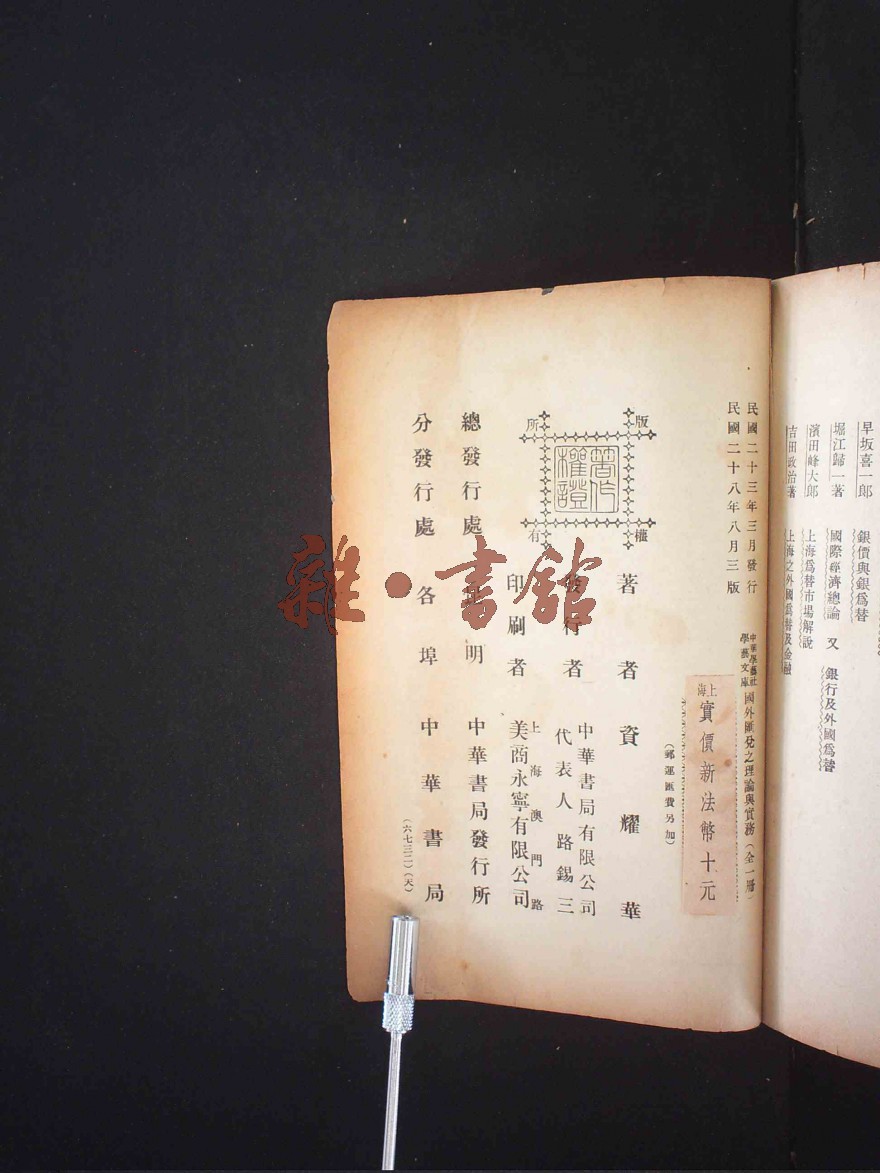 早坂喜一郎　銀價與銀爲替
堀江歸一著　國際經濟總論　又　銀行及外國爲替
濱田峰大郎　上海爲替市場解說
吉田政治著　上海之外國爲替及金融
民國二十三年三月發行
民國二十八年八月三版
中華學藝社
學藝文庫
國外匯兌之理論與實務（全一冊）
上海
實價新法幣十元
（郵運匯費另加）
版權所有
著作權證
著者　資耀華
發行者　中華書局有限公司
代表人　路錫三
印刷者　上海澳門路
美商永寧有限公司
總發行處　昆明　中華書局發行所
分發行處　各埠中華書局
（六七三二）（天）
雜·書館